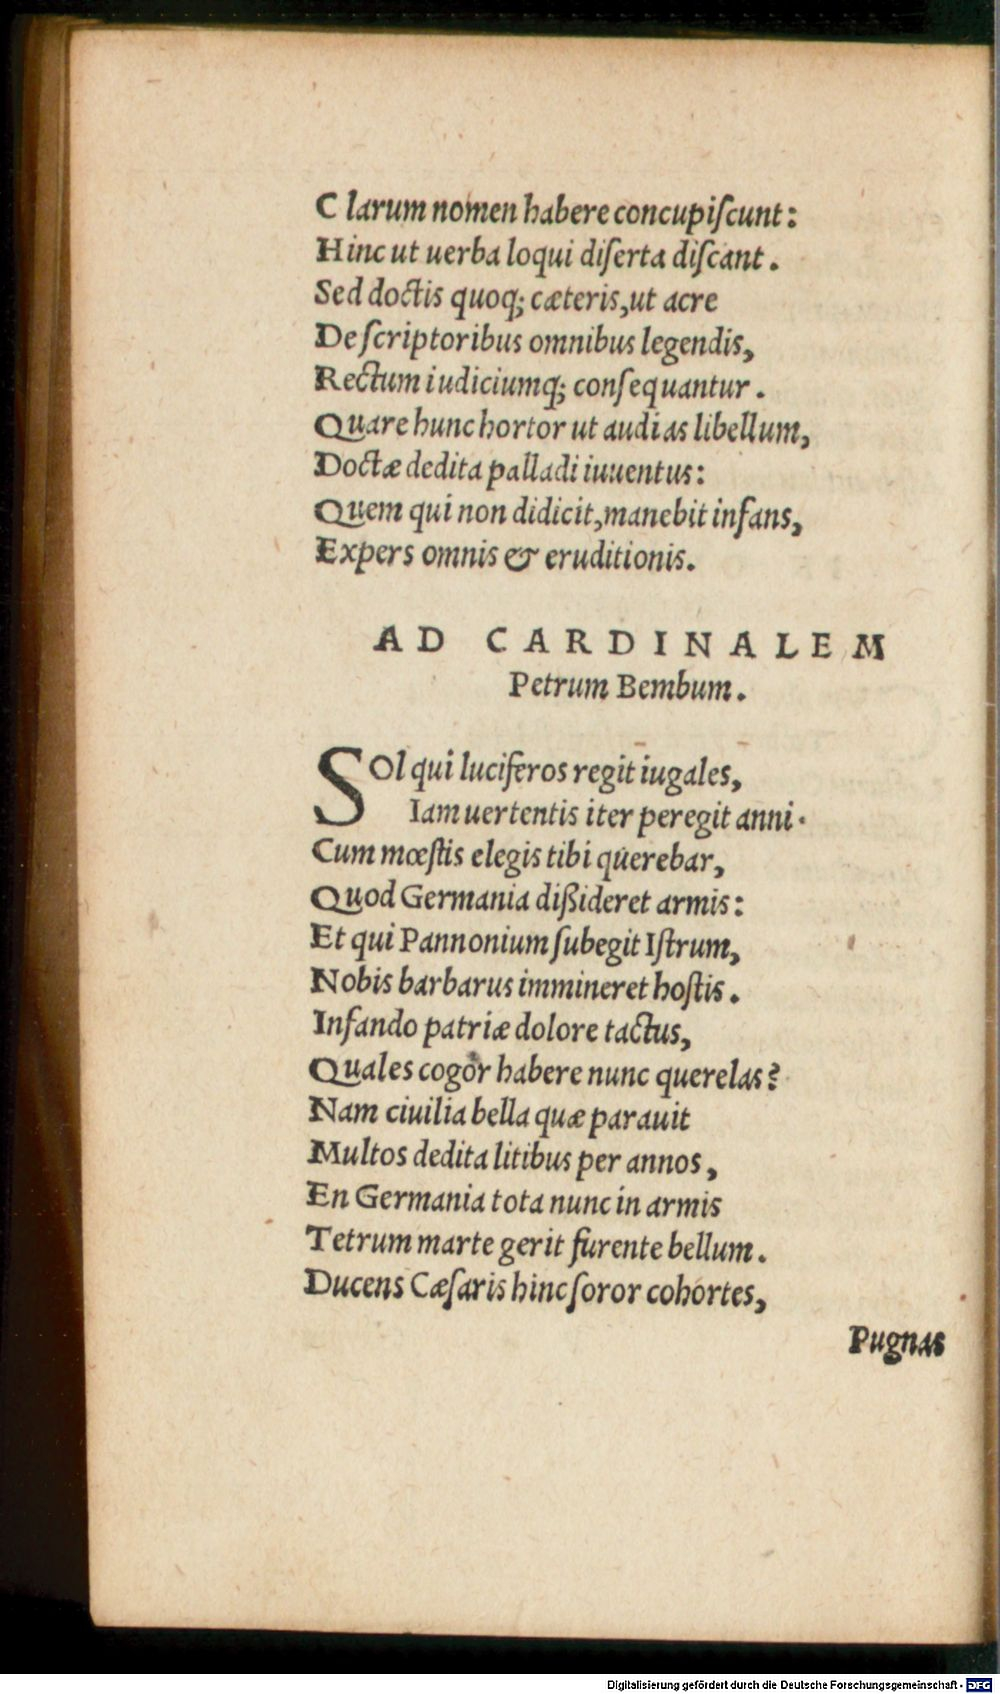 Clarum nomen habere concupiſcunt:
Hinc ut uerba loqui diſerta diſcant.
Sed doctis quoq; cæteris, ut acre
De ſcriptoribus omnibus legendis,
Rectum iudiciumq; conſequantur.
Quare hunc hortor ut audias libellum,
Doctæ dedita palladi iuuentus:
Quem qui non didicit, manebit infans,
Expers omnis & eruditionis.
AD CARDINALEM
Petrum Bembum.
SOl qui luciferos regit iugales,
Iam uertentis iter peregit anni.
Cum mœſtis elegis tibi querebar,
Quod Germania diſſideret armis:
Et qui Pannonium ſubegit Iſtrum,
Nobis barbarus immineret hoſtis.
Infando patriæ dolore tactus,
Quales cogor habere nunc querelas?
Nam ciuilia bella quæ parauit
Multos dedita litibus per annos,
En Germania tota nunc in armis
Tetrum marte gerit furente bellum.
Ducens Cæſaris hinc ſoror cohortes,
Pugnas
Digitalisierung gefördert durch die Deutsche Forschungsgemeinschaft - DFG